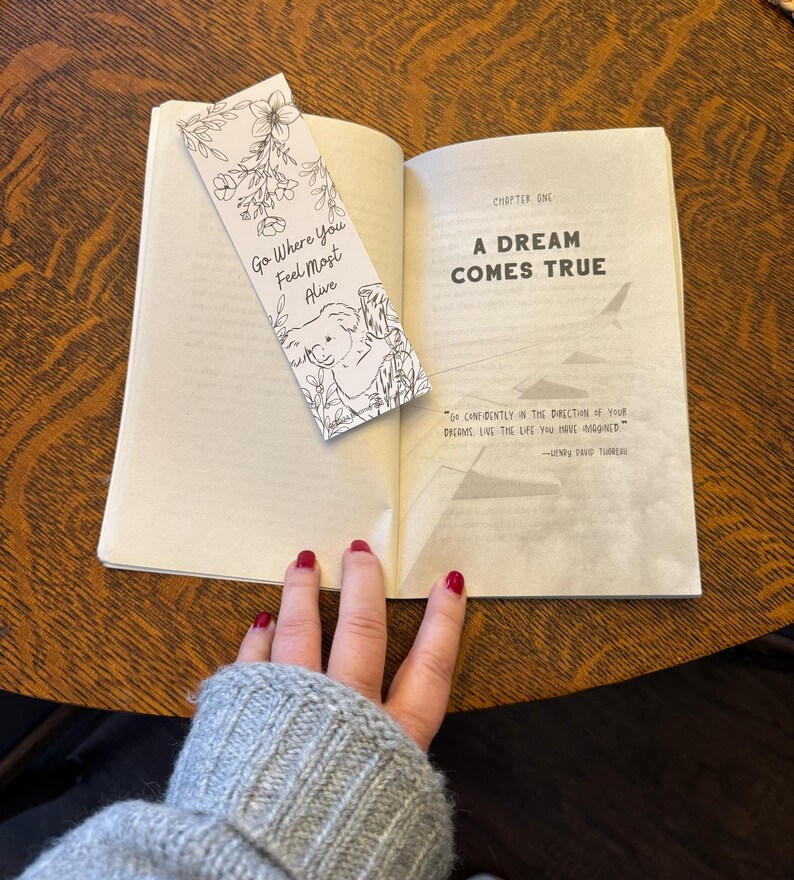 Go Where You
Feel Most
Alive
CHAPTER ONE:
A DREAM
COMES TRUE
"GO CONFIDENTLY IN THE DIRECTION OF YOUR
DREAMS. LIVE THE LIFE YOU HAVE IMAGINED."
—HENRY DAVID THOREAU